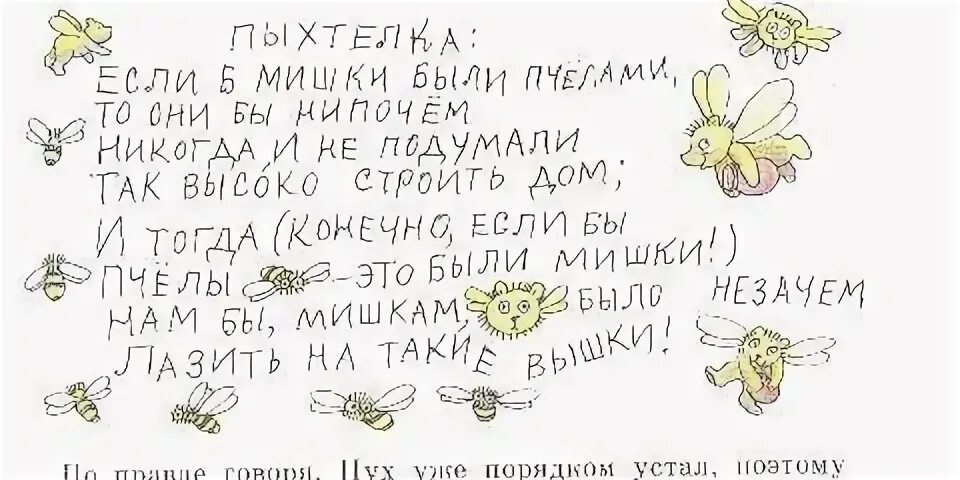 ПЫХТЕЛКА:
ЕСЛИ Б МИШКИ БЫЛИ ПЧЁЛАМИ,
ТО ОНИ БЫ НИПОЧЁМ
НИКОГДА И НЕ ПОДУМАЛИ
ТАК ВЫСОКО СТРОИТЬ ДОМ;
И ТОГДА (КОНЕЧНО, ЕСЛИ БЫ
ПЧЁЛЫ – ЭТО БЫЛИ МИШКИ!)
НАМ БЫ, МИШКАМ, БЫЛО НЕЗАЧЕМ
ЛАЗИТЬ НА ТАКИЕ ВЫШКИ!
По правде говоря, Пух уже порядком устал, поэтому